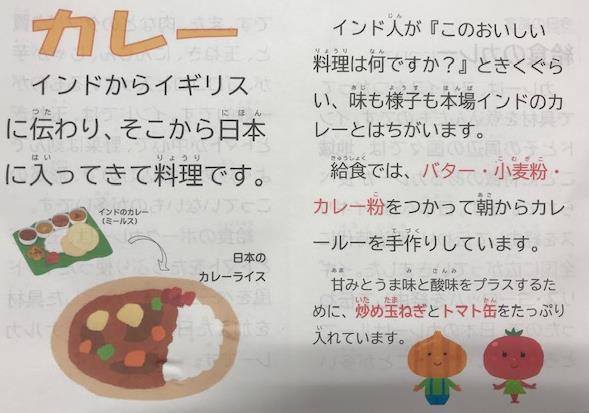 カレー
インドからイギリス
に伝わり、そこから日本
に入ってきて料理です。
インドのカレー
(ミールス)
日本の
カレーライス
インド人が『このおいしい
料理は何ですか?』ときくぐら
い、味も様子も本場インドのカ
レーとはちがいます。
給食では、バター・小麦粉・
カレー粉をつかって朝からカレ
ールーを手作りしています。
甘みとうま味と酸味をプラスするた
めに、炒め玉ねぎとトマト缶をたっぷり
入れています。